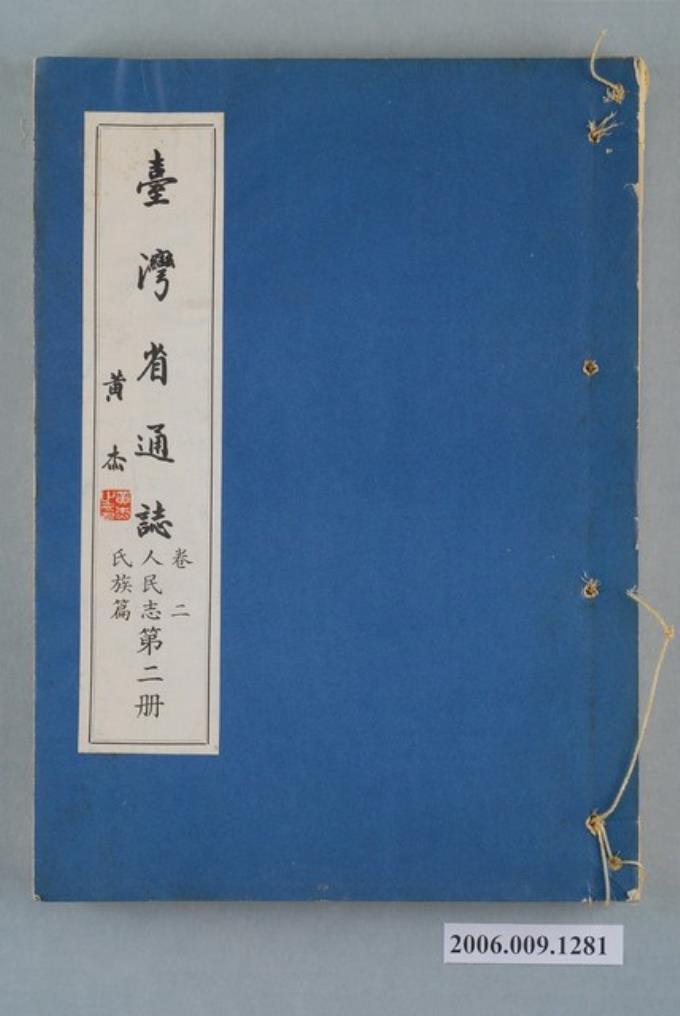 臺灣省通誌
卷二
人民志
氏族篇
第二册
黄杰
2006.009.1281